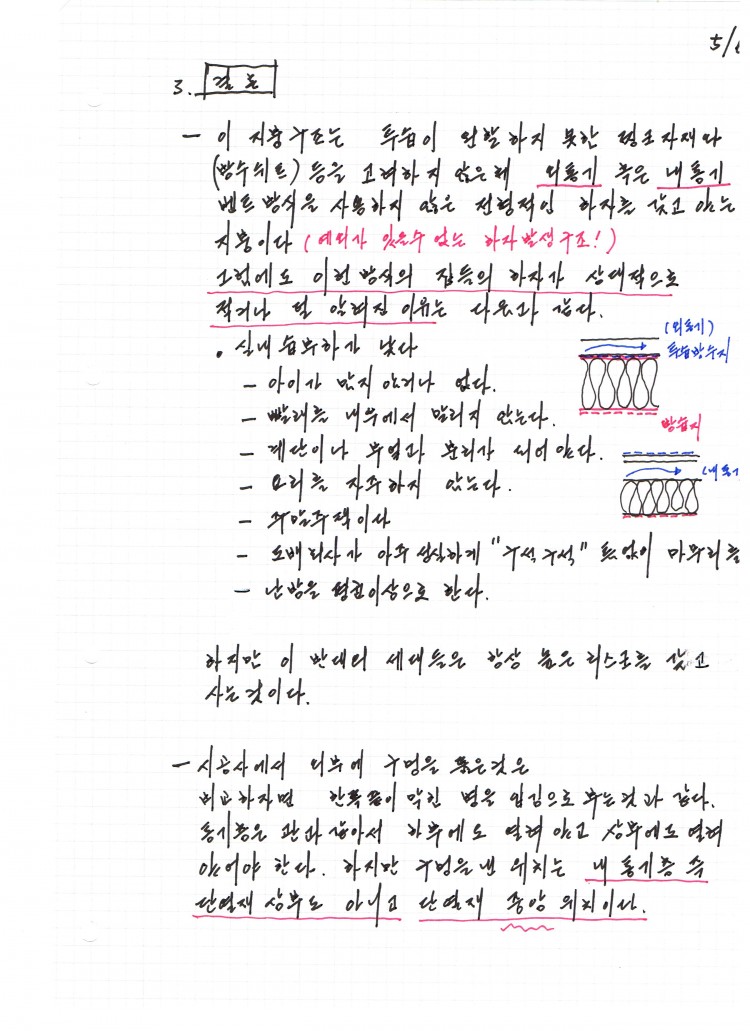 5/
3. 결론
- 이 지붕구조는 투습이 원활하지 못한 멤브자재와
(방수쉬트) 등을 고려하지 않은채 외통기 혹은 내통기
벤트방식을 사용하지 않은 전형적인 하자를 갖고 있는
지붕이다 (예외가 있을수 없는 하자발생구조!)
그럼에도 이런 방식의 집들의 하자가 상대적으로
적거나 덜 알려진 이유는 다음과 같다.
• 실내 습부하가 낮다
(외통기)
투습방수지
- 아이가 많지 않거나 없다.
- 빨래를 내부에서 말리지 않는다.
방습지
- 계단이나 무엇과 분리가 되어 있다.
(내통기
- 요리를 자주하지 않는다.
- 주말주택이다
- 도배회사가 아주 성실하게 "구석구석" 틈없이 마무리를
- 난방을 평균이상으로 한다.
하지만 이 반대의 세대들은 항상 높은 리스크를 갖고
사는것이다.
- 시공사에서 외부에 구멍을 뚫은것은
비교하자면 한쪽끝이 막힌 병을 입김으로 부는것과 같다.
통기층은 관과 같아서 하부에도 열려 있고 상부에도 열려
있어야 한다. 하지만 구멍을 낸 위치는 내통기층 즉
단열재 상부도 아니고 단열재 중앙 위치이다.